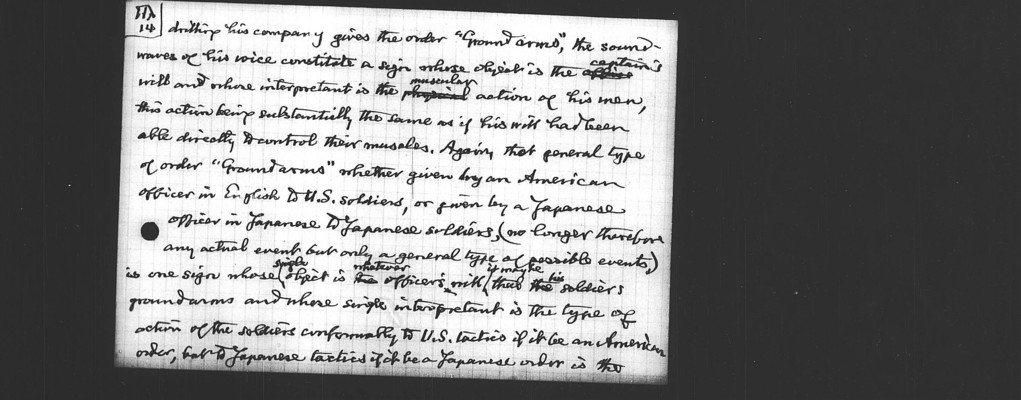 IIA
14
drilling his company gives the order "Ground arms", the sound-
waves of his voice constitute a sign whose object is the officer captain's
will and whose interpretant is the physical muscular action of his men,
this action being substantially the same as if his will had been
able directly to control their muscles. Again, that general type
of order "Ground arms" whether given by an American
officer in English to U.S. soldiers, or given by a Japanese
officer in Japanese to Japanese soldiers, (no longer therefore
any actual event but only a general type of possible events,)
is one sign whose single object is the whatever officer's will it may be that the his soldiers
ground arms and whose single interpretant is the type of
action of the soldiers conformably to U.S. tactics if it be an American
order, but to Japanese tactics if it be a Japanese order is the